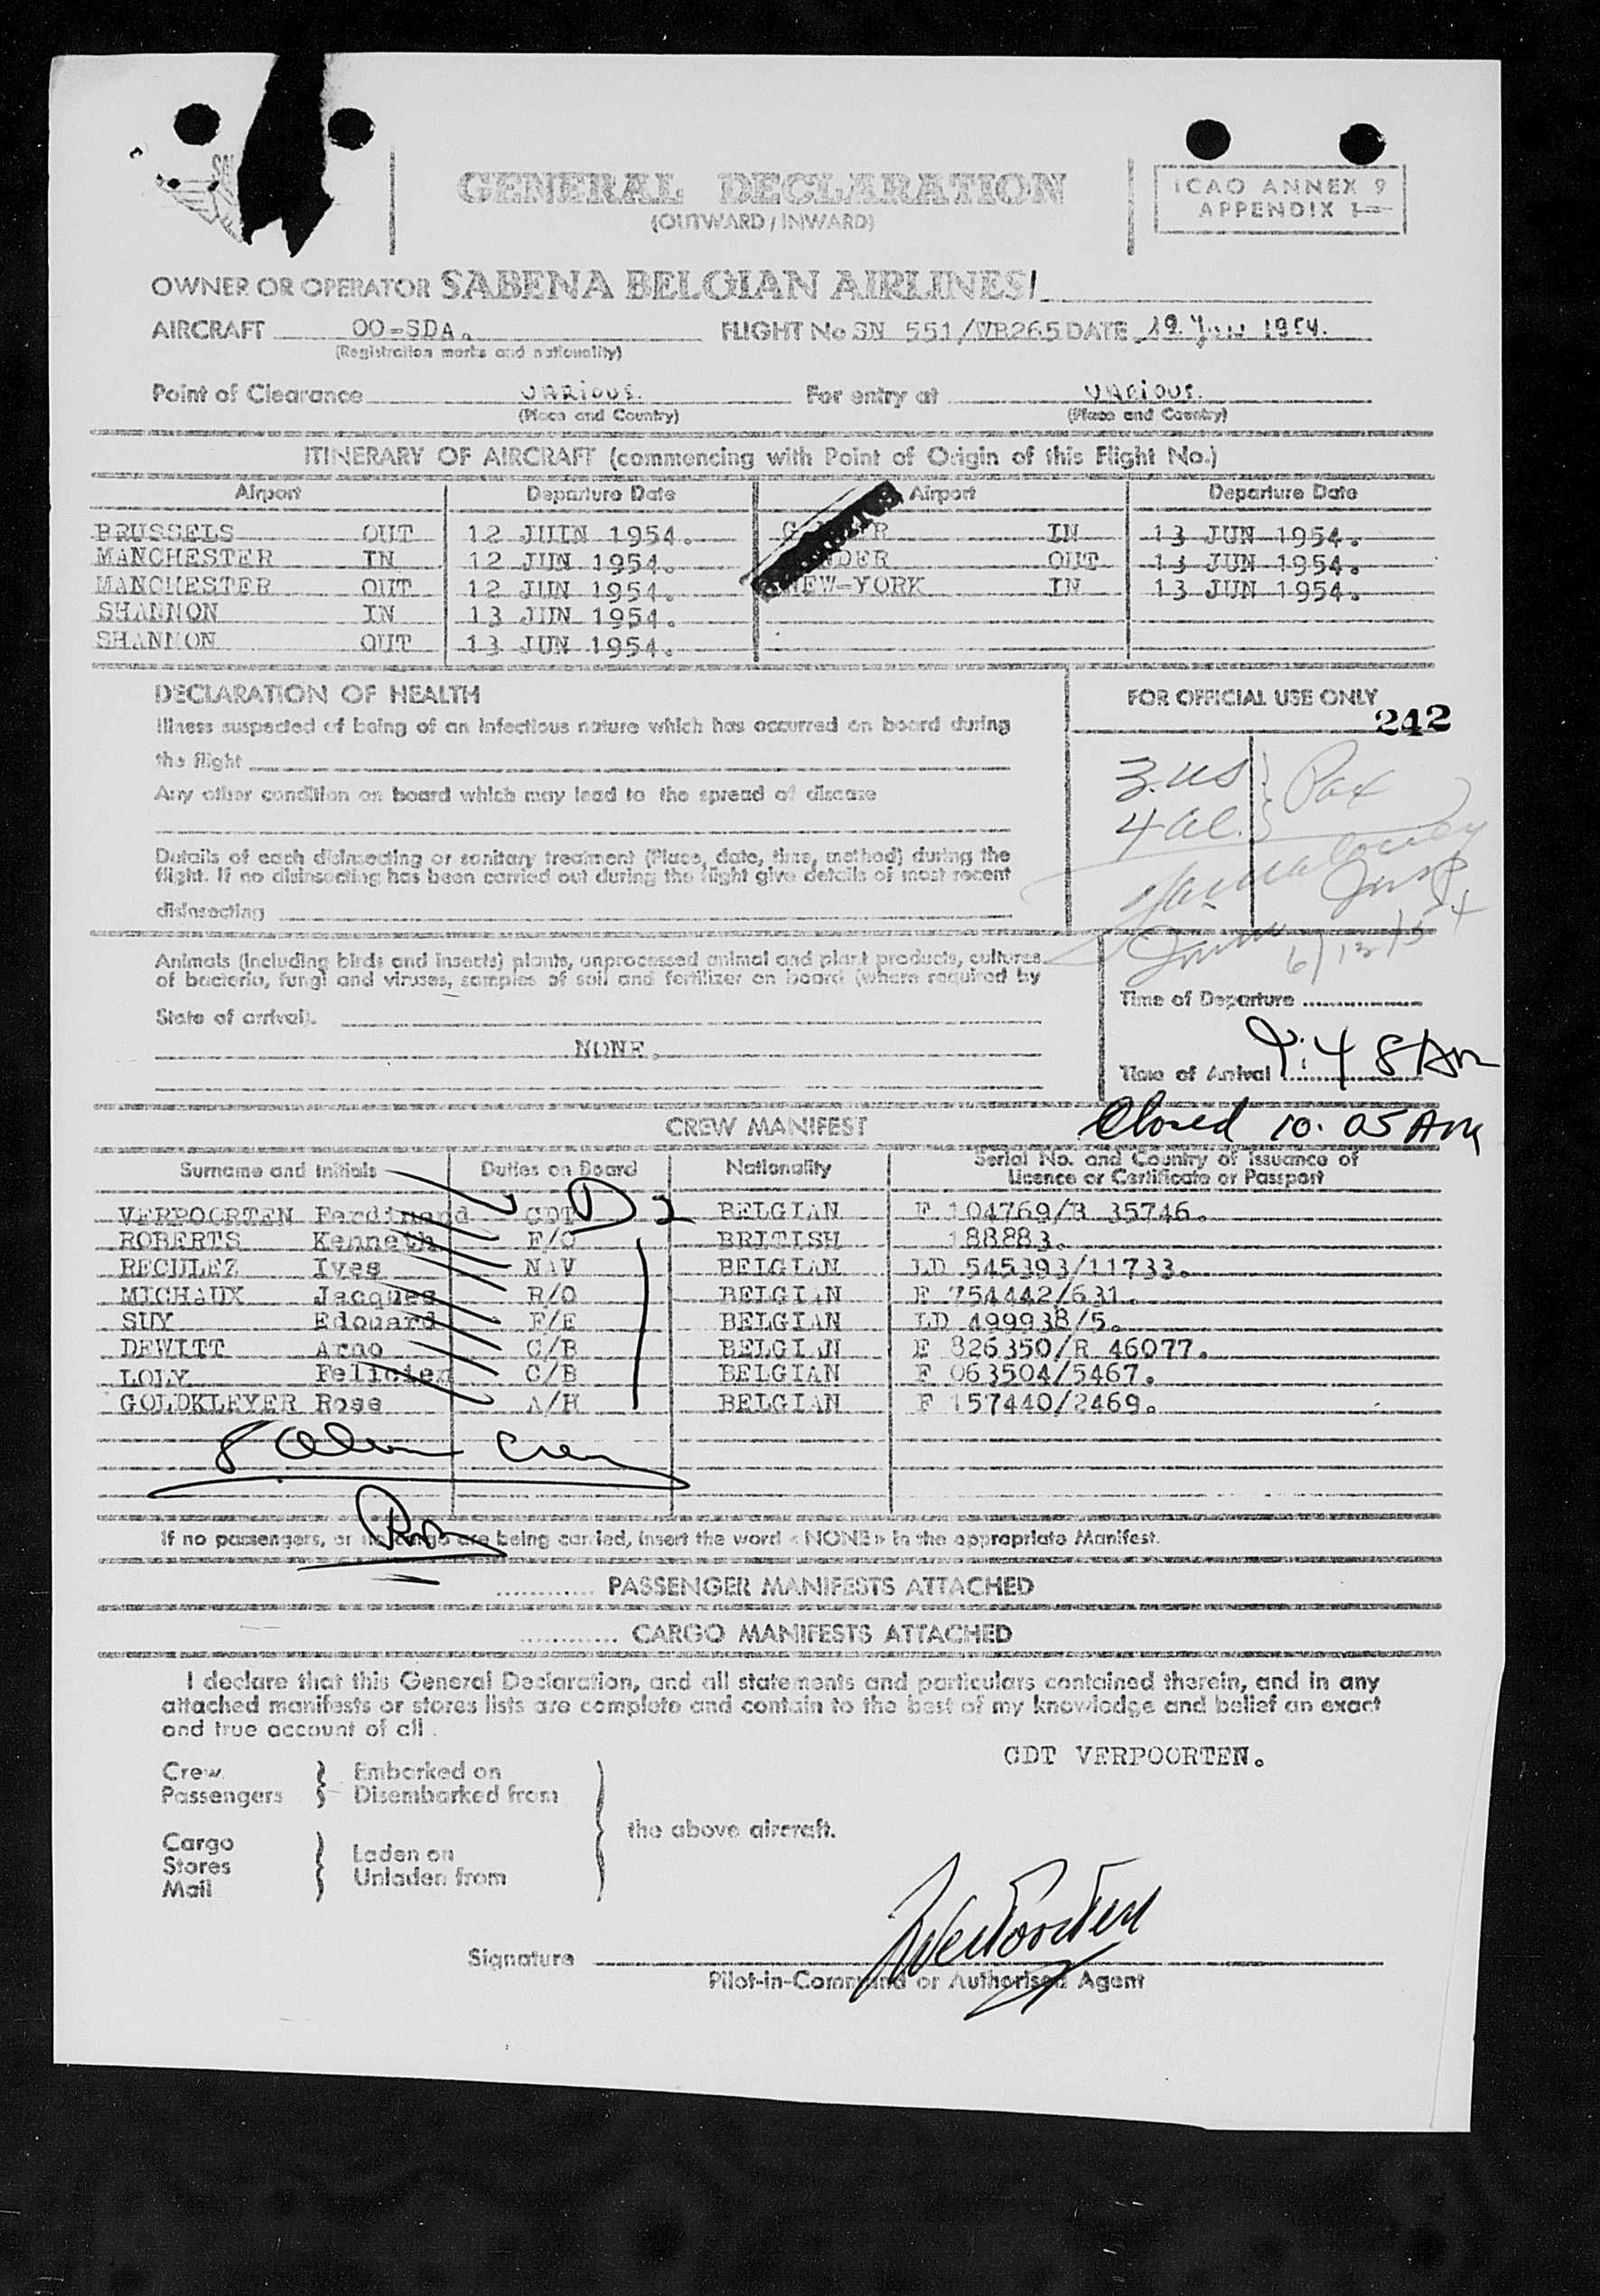 GENERAL DECLARATION
(OUTWARD / INWARD)
ICAO ANNEX 9
APPENDIX 1
OWNER OR OPERATOR SABENA BELGIAN AIRLINES
AIRCRAFT OO-SDA. FLIGHT No SN 551/WB265 DATE 1954.
(Registration marks and nationality)
Point of Clearance VARIOUS. For entry at VARIOUS.
(Place and Country) (Place and Country)
ITINERARY OF AIRCRAFT (commencing with Point of Origin of this Flight No.)
Airport Departure Date Airport Departure Date
BRUSSELS OUT 12 JUIN 1954. IN 13 JUN 1954.
MANCHESTER IN 12 JUN 1954. OUT 13 JUN 1954.
MANCHESTER OUT 12 JUN 1954. NEW-YORK IN 13 JUN 1954.
SHANNON IN 13 JUN 1954.
SHANNON OUT 13 JUN 1954.
DECLARATION OF HEALTH
Illness suspected of being of an infectious nature which has occurred on board during
the flight
Any other condition on board which may lead to the spread of disease
Details of each disinsecting or sanitary treatment (Place, date, time, method) during the
flight. If no disinsecting has been carried out during the flight give details of most recent
disinsecting
FOR OFFICIAL USE ONLY
242
3 US
4 al. Pax
Insp
Animals (including birds and insects) plants, unprocessed animal and plant products, cultures
of bacteria, fungi and viruses, samples of soil and fertilizer on board (where required by
State of arrival).
NONE.
Time of Departure
Time of Arrival 9:48 AM
Closed 10.05 AM
CREW MANIFEST
Surname and Initials Duties on Board Nationality Serial No. and Country of Issuance of
Licence or Certificate or Passport
VERPOORTEN Ferdinand CDT D 2 BELGIAN F 104769/R 35746.
ROBERTS Kenneth F/O BRITISH 188883.
RECULEZ Ives NAV BELGIAN LD 545393/11733.
MICHAUX Jacques R/O BELGIAN F 754442/631.
SUY Edouard F/E BELGIAN LD 499938/5.
DEWITT Arno C/B BELGIAN E 826350/R 46077.
LOLY Felicien C/B BELGIAN F 063504/5467.
GOLDKLEYER Rose A/H BELGIAN F 157440/2469.
8 Alien Crew
If no passengers, or no cargo are being carried, insert the word «NONE» in the appropriate Manifest.
PASSENGER MANIFESTS ATTACHED
CARGO MANIFESTS ATTACHED
I declare that this General Declaration, and all statements and particulars contained therein, and in any
attached manifests or stores lists are complete and contain to the best of my knowledge and belief an exact
and true account of all.
CDT VERPOORTEN.
Crew Embarked on
Passengers Disembarked from
the above aircraft.
Cargo
Stores Laden on
Mail Unladen from
Signature Verpoorten
Pilot-in-Command or Authorised Agent